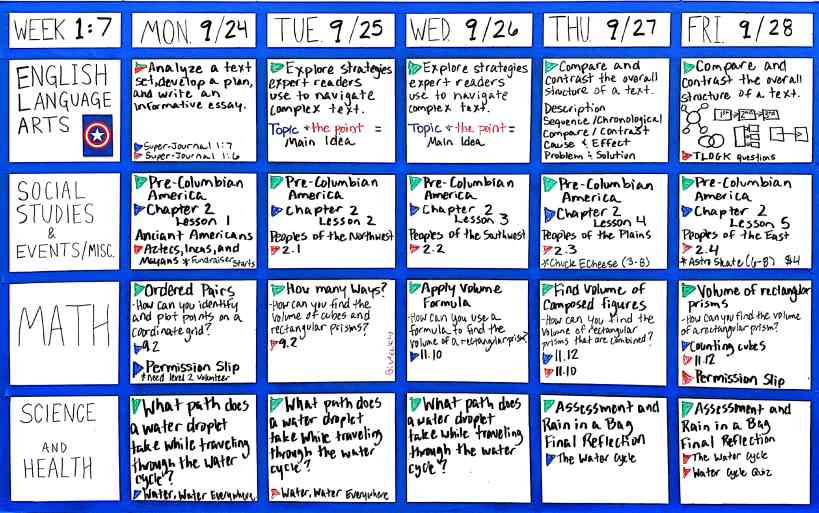 WEEK 1:7
MON. 9/24
TUE. 9/25
WED. 9/26
THU. 9/27
FRI. 9/28
ENGLISH
LANGUAGE
ARTS
Analyze a text
set, develop a plan,
and write an
informative essay.
Super-Journal 1:7
Super-Journal 1:6
Explore strategies
expert readers
use to navigate
complex text.
Topic + the point =
Main Idea
Explore strategies
expert readers
use to navigate
complex text.
Topic + the point =
Main Idea
Compare and
contrast the overall
structure of a text.
Description
Sequence/Chronological
Compare/Contrast
Cause & Effect
Problem & Solution
Compare and
contrast the overall
structure of a text.
TLO&K questions
SOCIAL
STUDIES
&
EVENTS/MISC.
Pre-Columbian
America
Chapter 2
Lesson 1
Ancient Americans
Aztecs, Incas, and
Mayans *Fundraiser Starts
Pre-Columbian
America
Chapter 2
Lesson 2
Peoples of the Northwest
2.1
Pre-Columbian
America
Chapter 2
Lesson 3
Peoples of the Southwest
2.2
Pre-Columbian
America
Chapter 2
Lesson 4
Peoples of the Plains
2.3
*Chuck E Cheese (3-8)
Pre-Columbian
America
Chapter 2
Lesson 5
Peoples of the East
2.4
*Astro Skate (6-8) $4
MATH
Ordered Pairs
-How can you identify
and plot points on a
coordinate grid?
9.2
Permission Slip
*need level 2 volunteer
How many ways?
-How can you find the
volume of cubes and
rectangular prisms?
9.2
Apply Volume
Formula
-How can you use a
formula to find the
volume of a rectangular prism?
11.10
Find Volume of
Composed figures
-How can you find the
volume of rectangular
prisms that are combined?
11.12
11.10
Volume of rectangular
prisms
-How can you find the volume
of a rectangular prism?
Counting cubes
11.12
Permission Slip
SCIENCE
AND
HEALTH
What path does
a water droplet
take while traveling
through the water
cycle?
Water, Water Everywhere
What path does
a water droplet
take while traveling
through the water
cycle?
Water, Water Everywhere
What path does
a water droplet
take while traveling
through the water
cycle?
Assessment and
Rain in a Bag
Final Reflection
The Water Cycle
Assessment and
Rain in a Bag
Final Reflection
The Water Cycle
Water Cycle Quiz